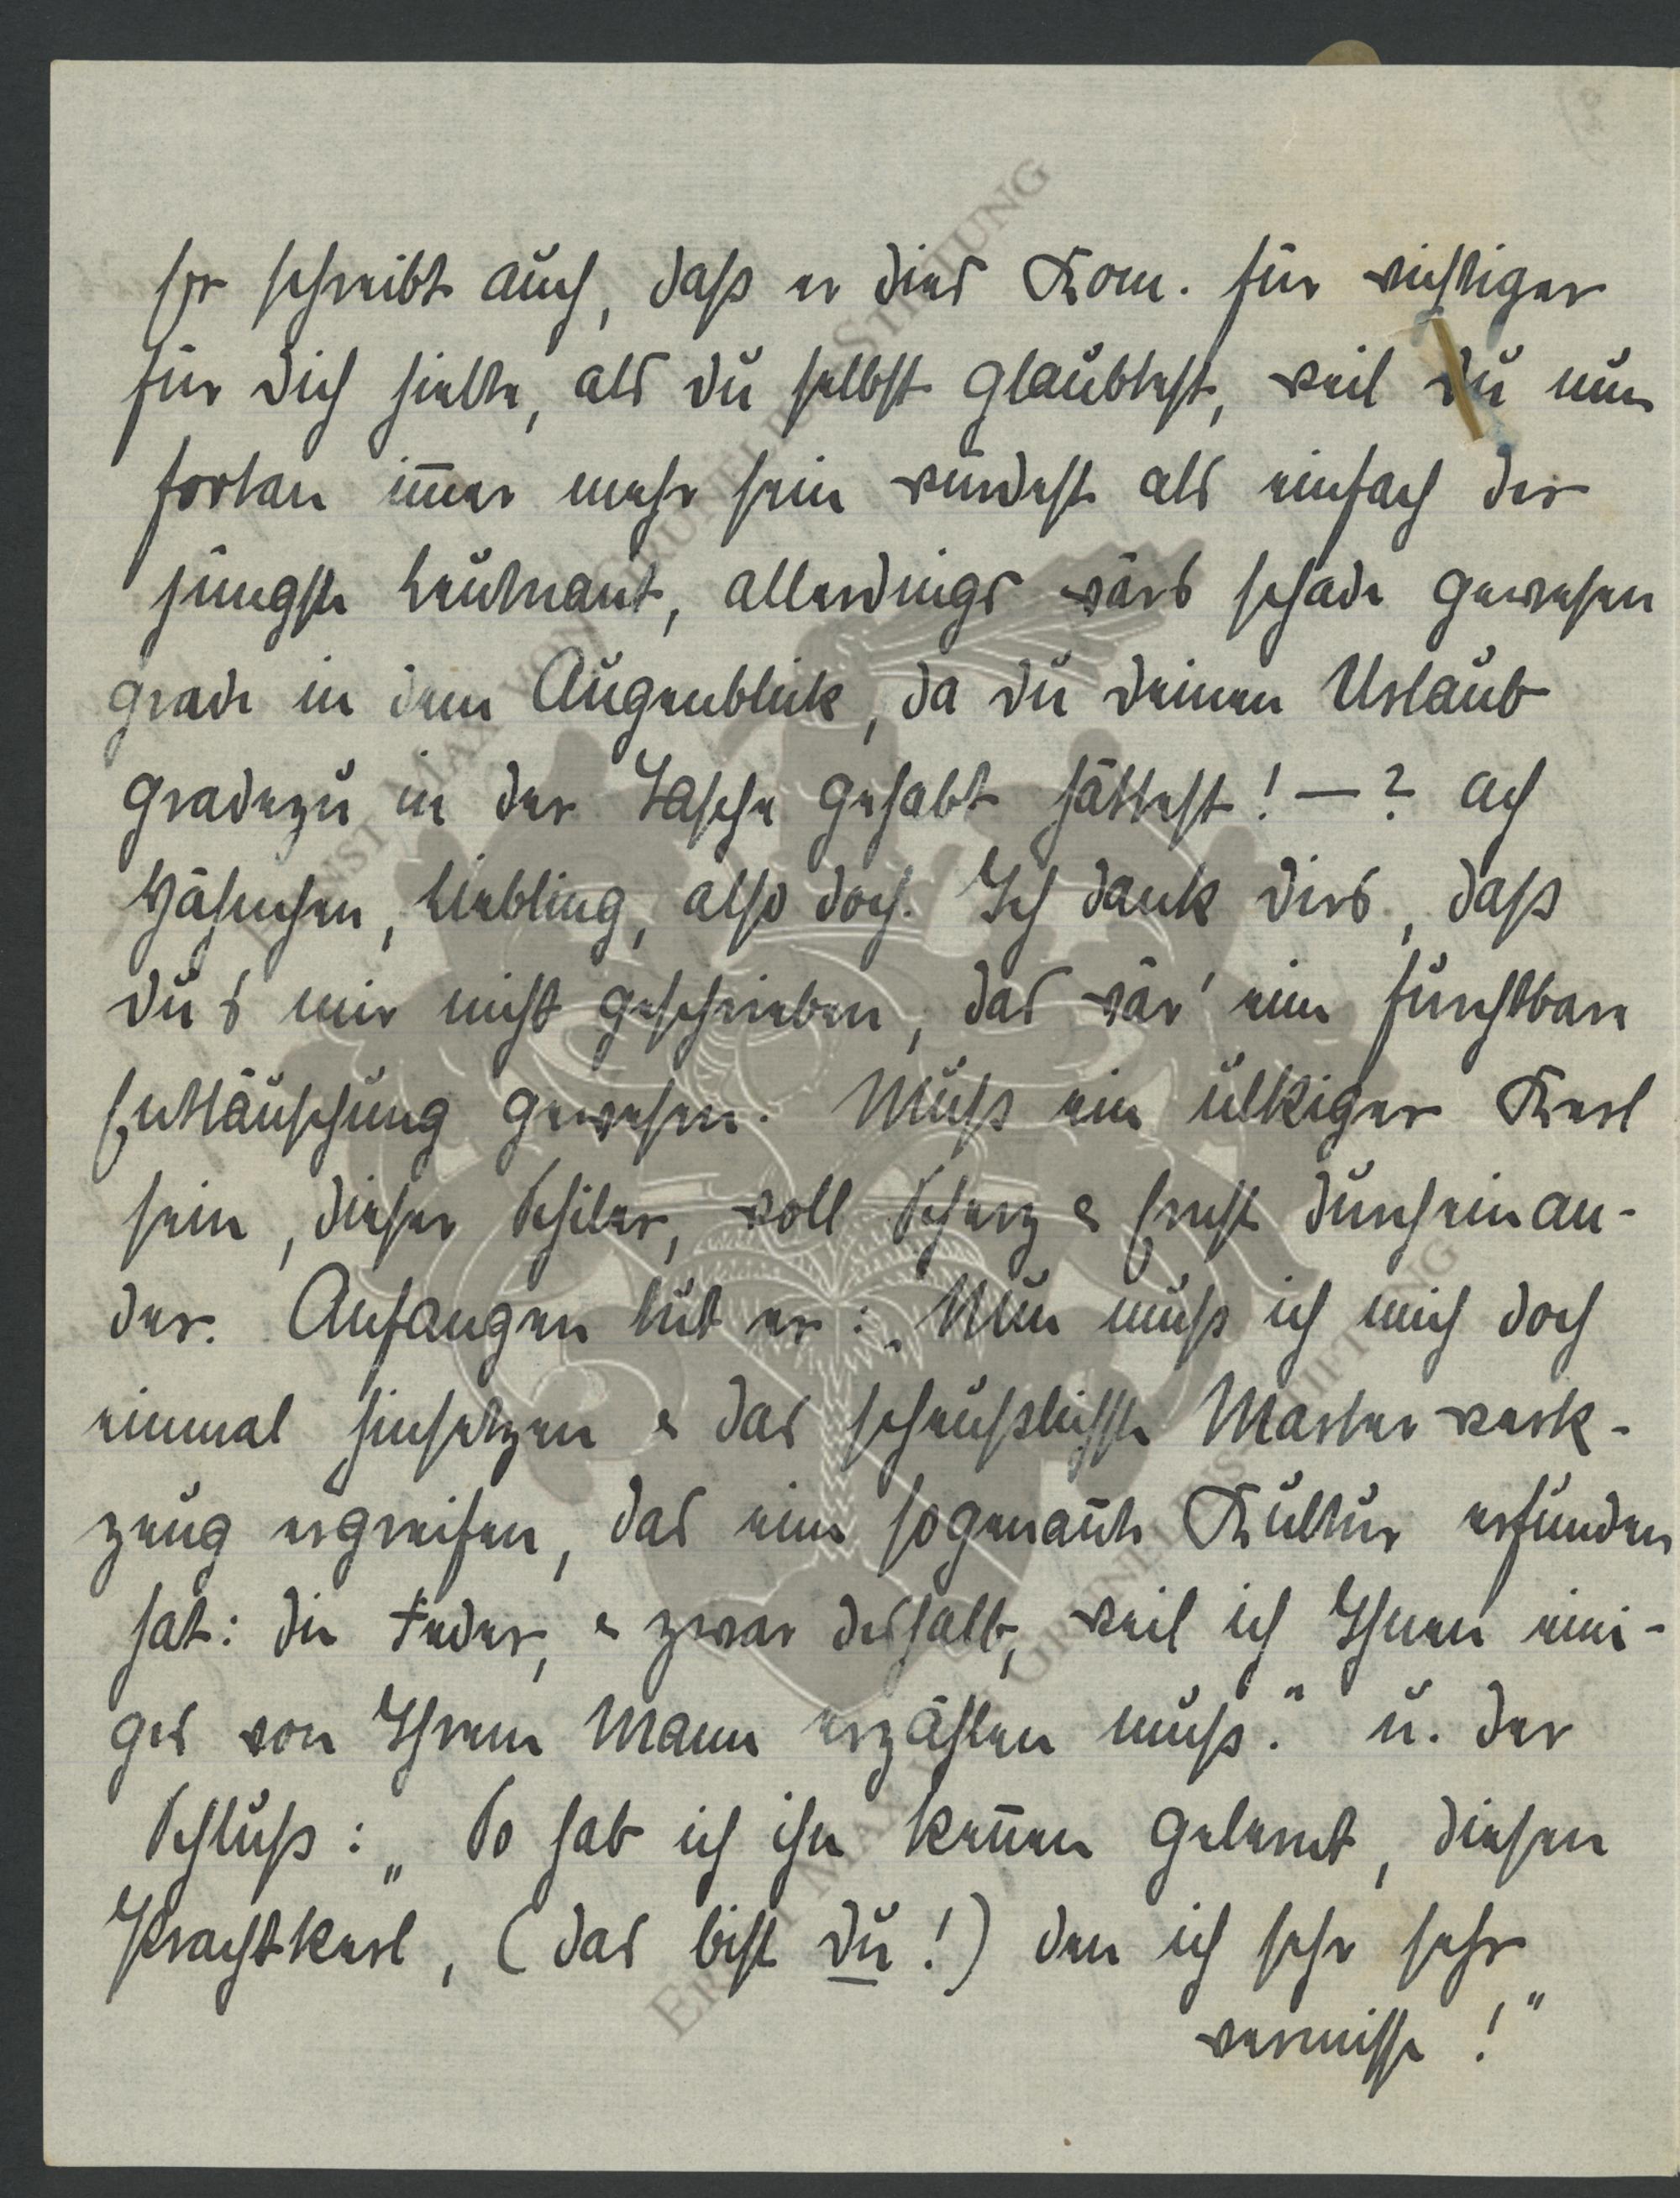 Er schreibt auch, daß er dies Kom. für wichtiger
für dich hielte, als du selbst glaubtest, weil du nun
fortan im̅er mehr sein würdest als einfach der
jüngste Leutnant, allerdings wärs schade gewesen
grade in dem Augenblick, da du deinen Urlaub
gradezu in der Tasche gehabt hättest! — ? ach
Hähnchen, Liebling, also doch. Ich dank dirs, daß
du's mir nicht geschrieben, das wär' eine furchtbare
Enttäuschung gewesen. Muß ein ulkiger Kerl
sein, dieser Schiler, voll Scherz & Ernst durcheinan-
der. Anfangen tut er: „Nun muß ich mich doch
einmal hinsetzen & das scheußlichste Marterwerk-
zeug ergreifen, das eine sogenan̅te Kultur erfunden
hat: die Feder, & zwar deshalb, weil ich Ihnen eini-
ges von Ihrem Mann erzählen muß." u. der
Schluß: „So hab ich ihn ken̅en gelernt, diesen
Prachtkerl, (das bist du!) den ich sehr sehr
vermisse!"
ERNST MAX VON GRUNELIUS-STIFTUNG
ERNST MAX VON GRUNELIUS-STIFTUNG